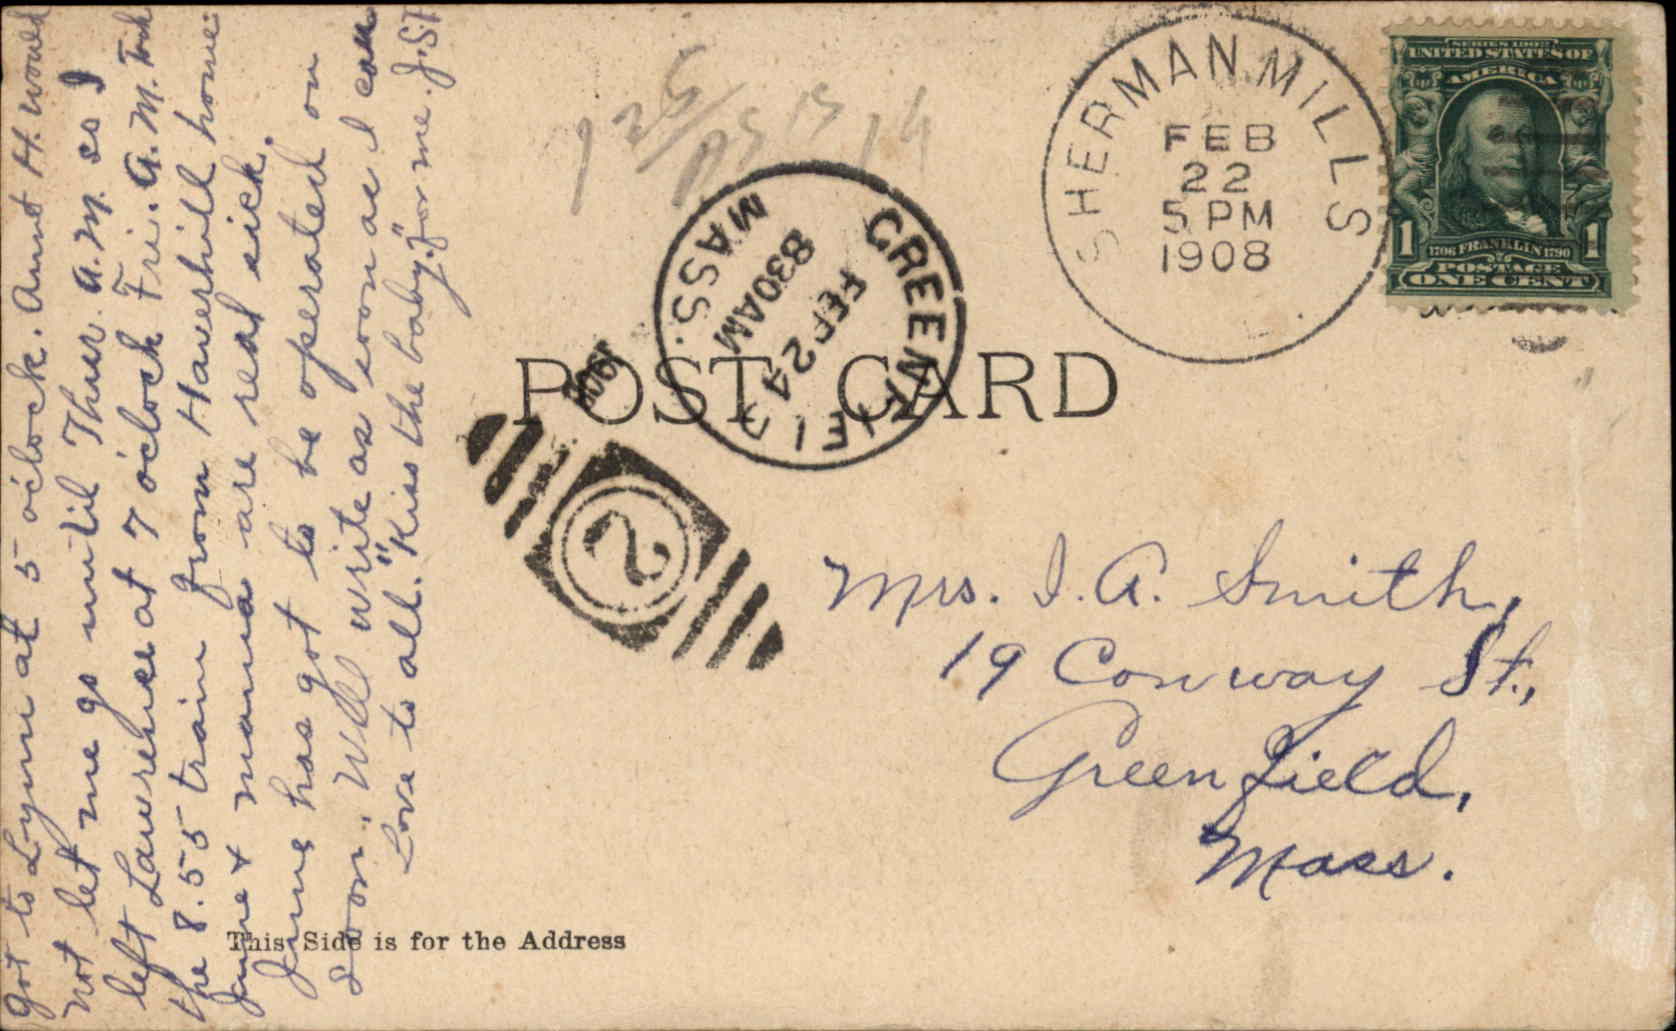 SHERMAN MILLS
FEB
22
5 PM
1908
SERIES 1902
UNITED STATES OF
AMERICA
1 1706 FRANKLIN 1790 1
POSTAGE
ONE CENT
GREENFIELD
MASS.
FEB 24
830AM
1908
2
POST CARD
Mrs. I. A. Smith,
19 Conway St.,
Greenfield,
Mass.
This Side is for the Address
Got to Lynn at 5 o'clock. Aunt H. would
not let me go until Thur. A.M. so I
left Lawrence at 7 o'clock Fri. A.M. Took
the 8.55 train from Haverhill home.
June & mama are real sick.
June has got to be operated on
soon. Will write as soon as I can
Love to all. "Kiss the baby," for me. J.S.